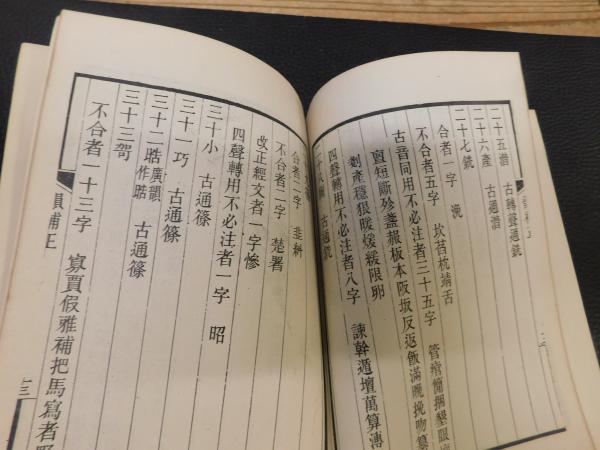 二十五潸　古轉聲通銑
二十六產　古通潸
二十七銑
合者一字　洗
不合者五字　坎苔枕靖舌
古音同用不必注者三十五字　管痯簡捆墾眼
亶短斷殄盞報板本阪坂反返飯滿晩挽吻纂
剗產穩狠暖煖緩限卵
四聲轉用不必注者八字　諫幹遁壇萬算漙
古通銑
合者二字　韭耕
不合者二字　楚署
改正經文者一字慘
四聲轉用不必注者一字　昭
三十小　古通篠
三十一巧　古通篠
三十二晧　廣韻作晧　古通篠
三十三哿
不合者一十三字　寡賈假雅補把馬寫者野
韻補正
十三